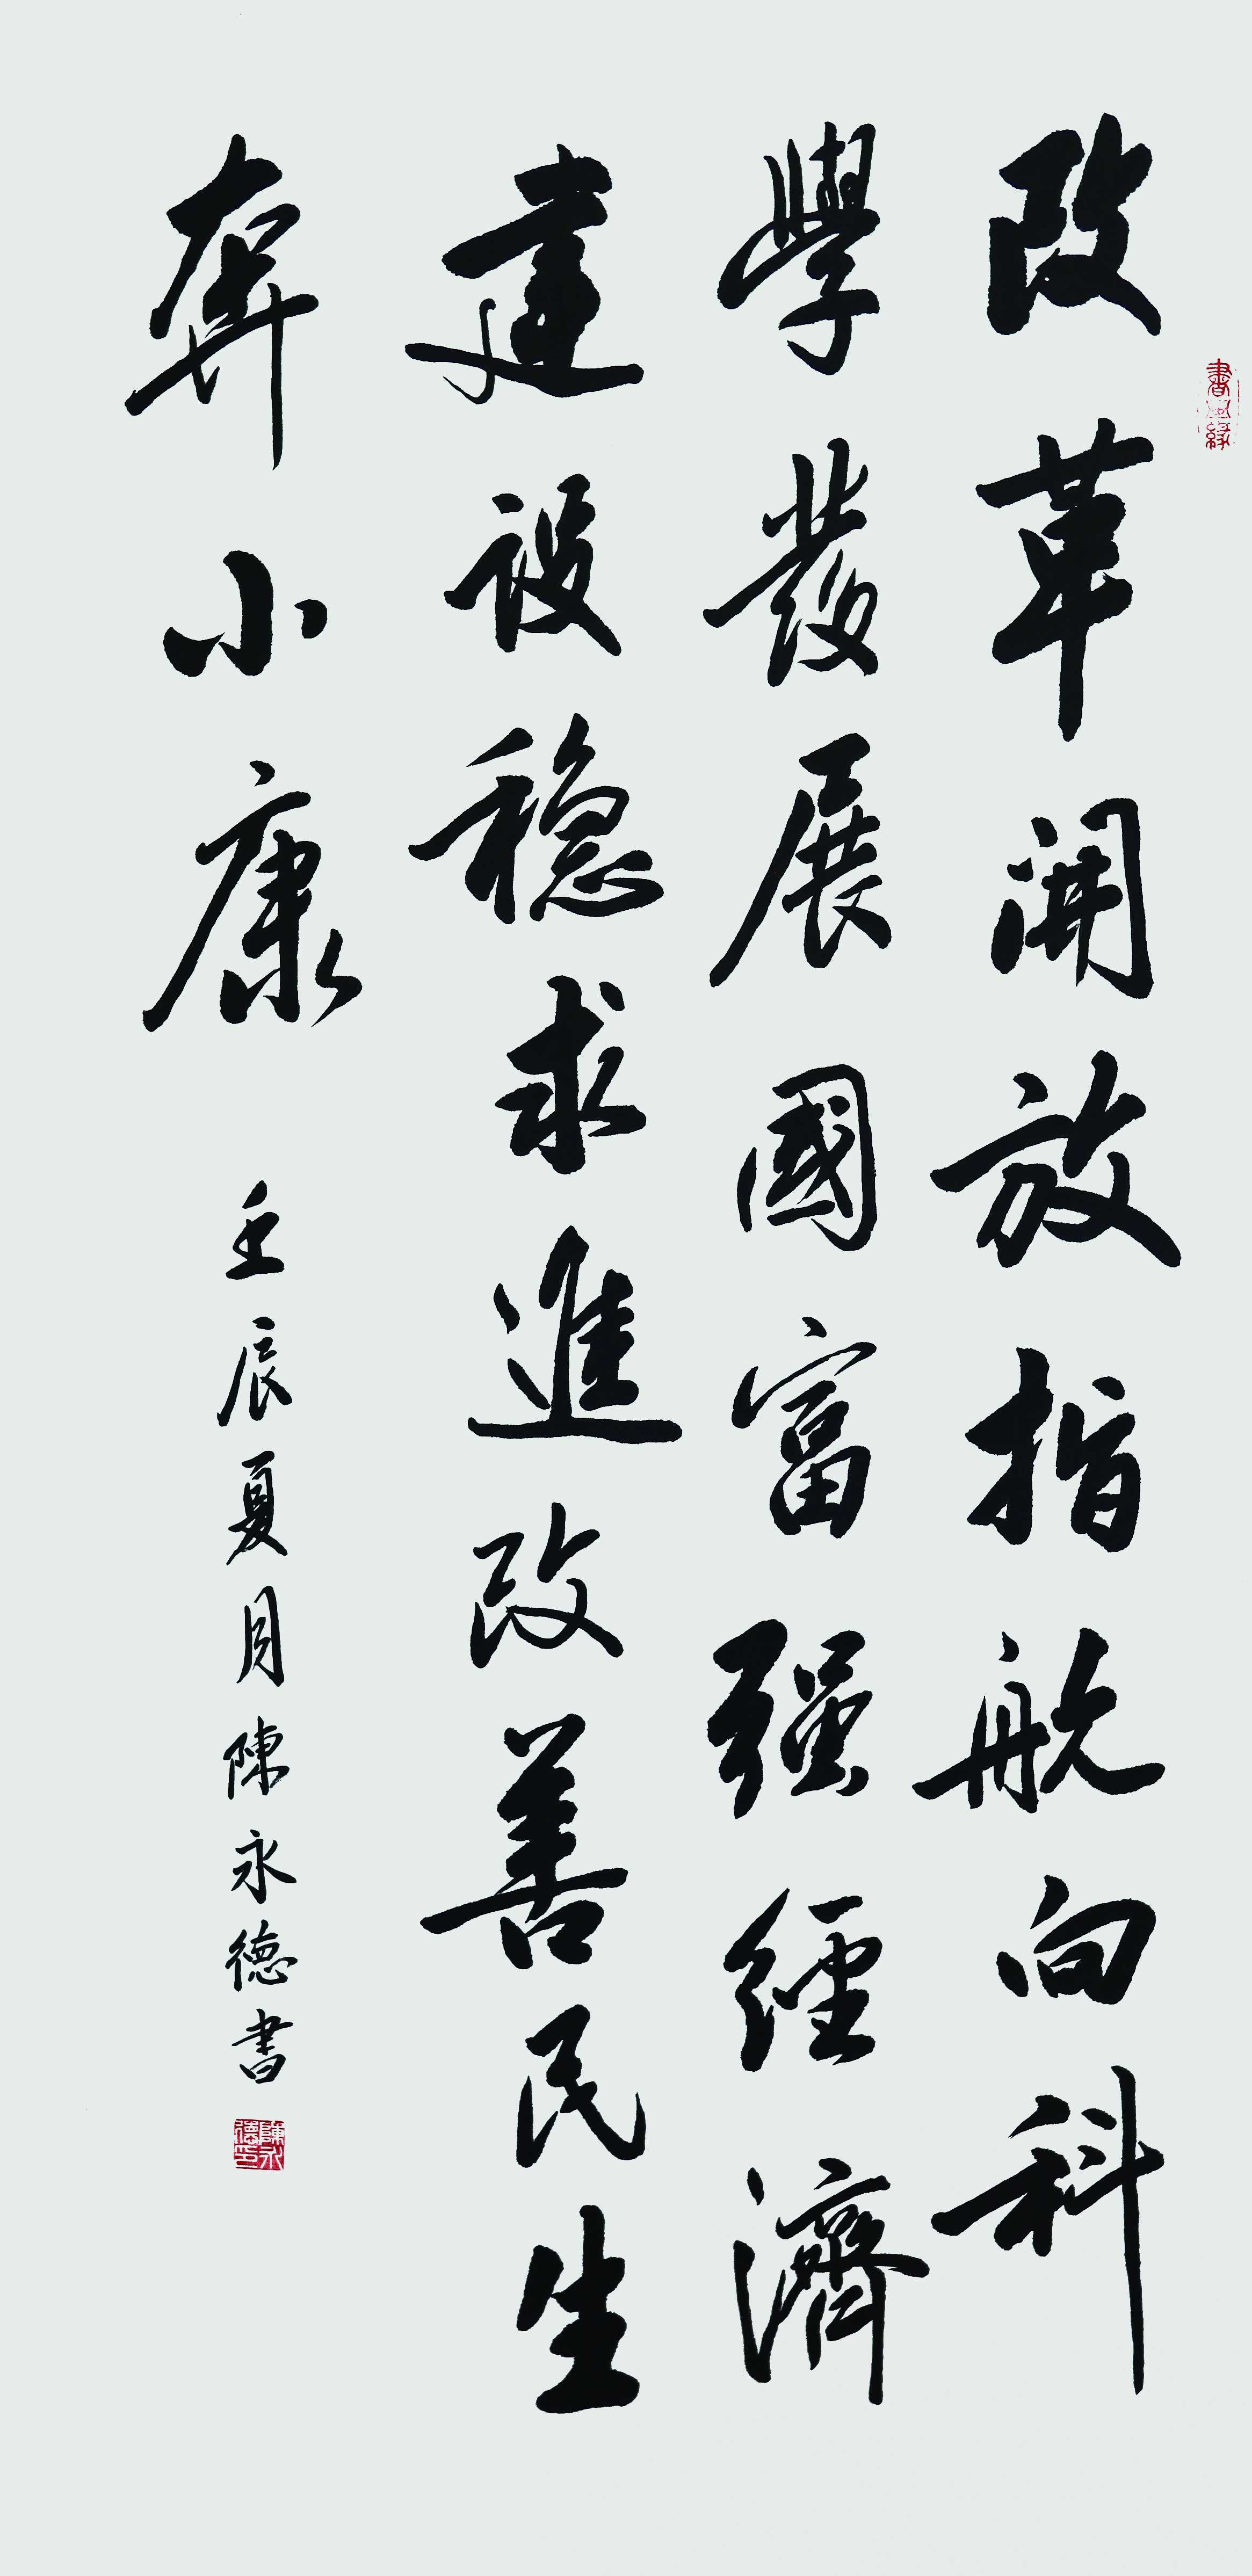 改革開放指航向科
學發展國富强經濟
建設穩求進改善民生
奔小康
壬辰夏月陳永德書
陳永德印